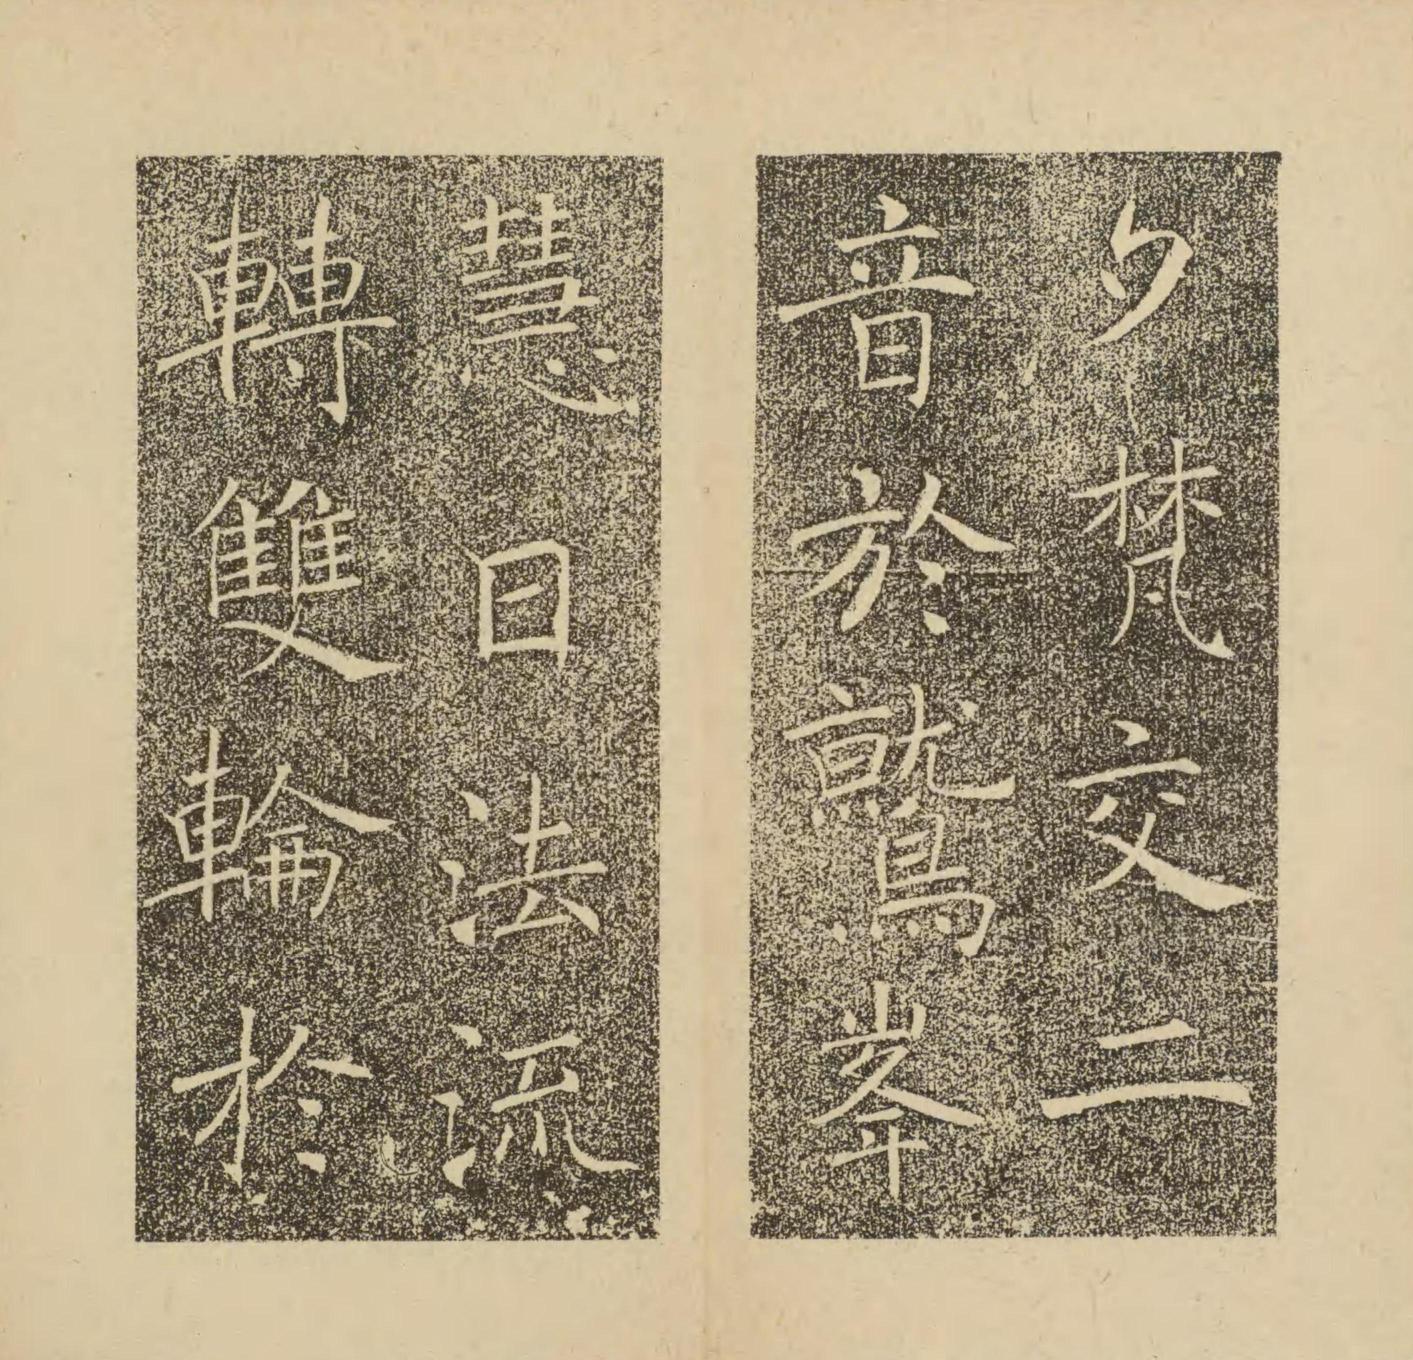 夕梵交二
音於鷲峯
慧日法流
轉雙輪於